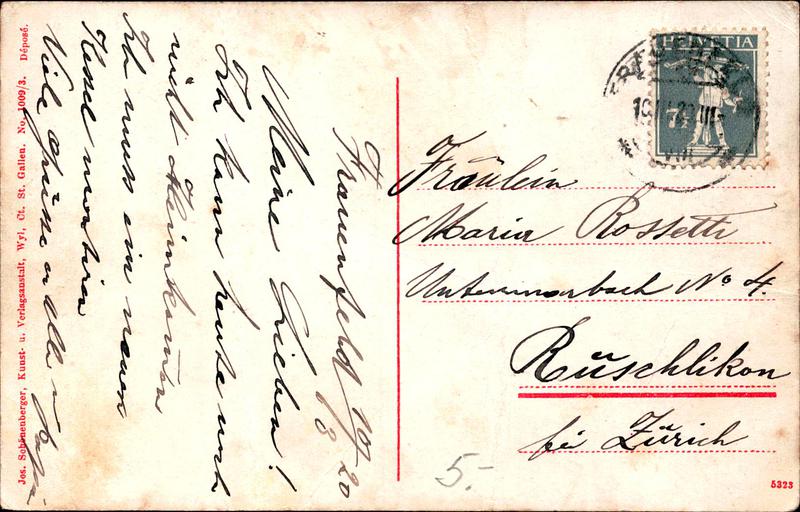 Frauenfeld 19/3 20
Meine Lieben!
Ich kann heute noch
nicht Heimkommen
Ich muss ein neuen
Kessel montiren
Viele Grüsse an alle
Papa
HELVETIA
7½
Fräulein
Maria Rossetti
No 4.
Rüschlikon
bei Zürich
5.-
5323
Jos. Schönenberger, Kunst- u. Verlagsanstalt, Wyl, Ct. St. Gallen. No. 1009/3. Déposé.